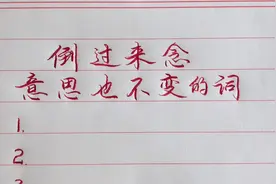 倒过来念
意思也不变的词
1.
2.